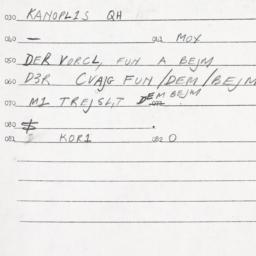 030 KANOPL1S QH
040 — 041 MOX
050 DER VORCL, FUN A BEJM
060 D3R CVAJG FUN/DEM/BEJM
070 M1 TREJSL,T DEM BEJM 072
080 $
081 KOR1 082 O